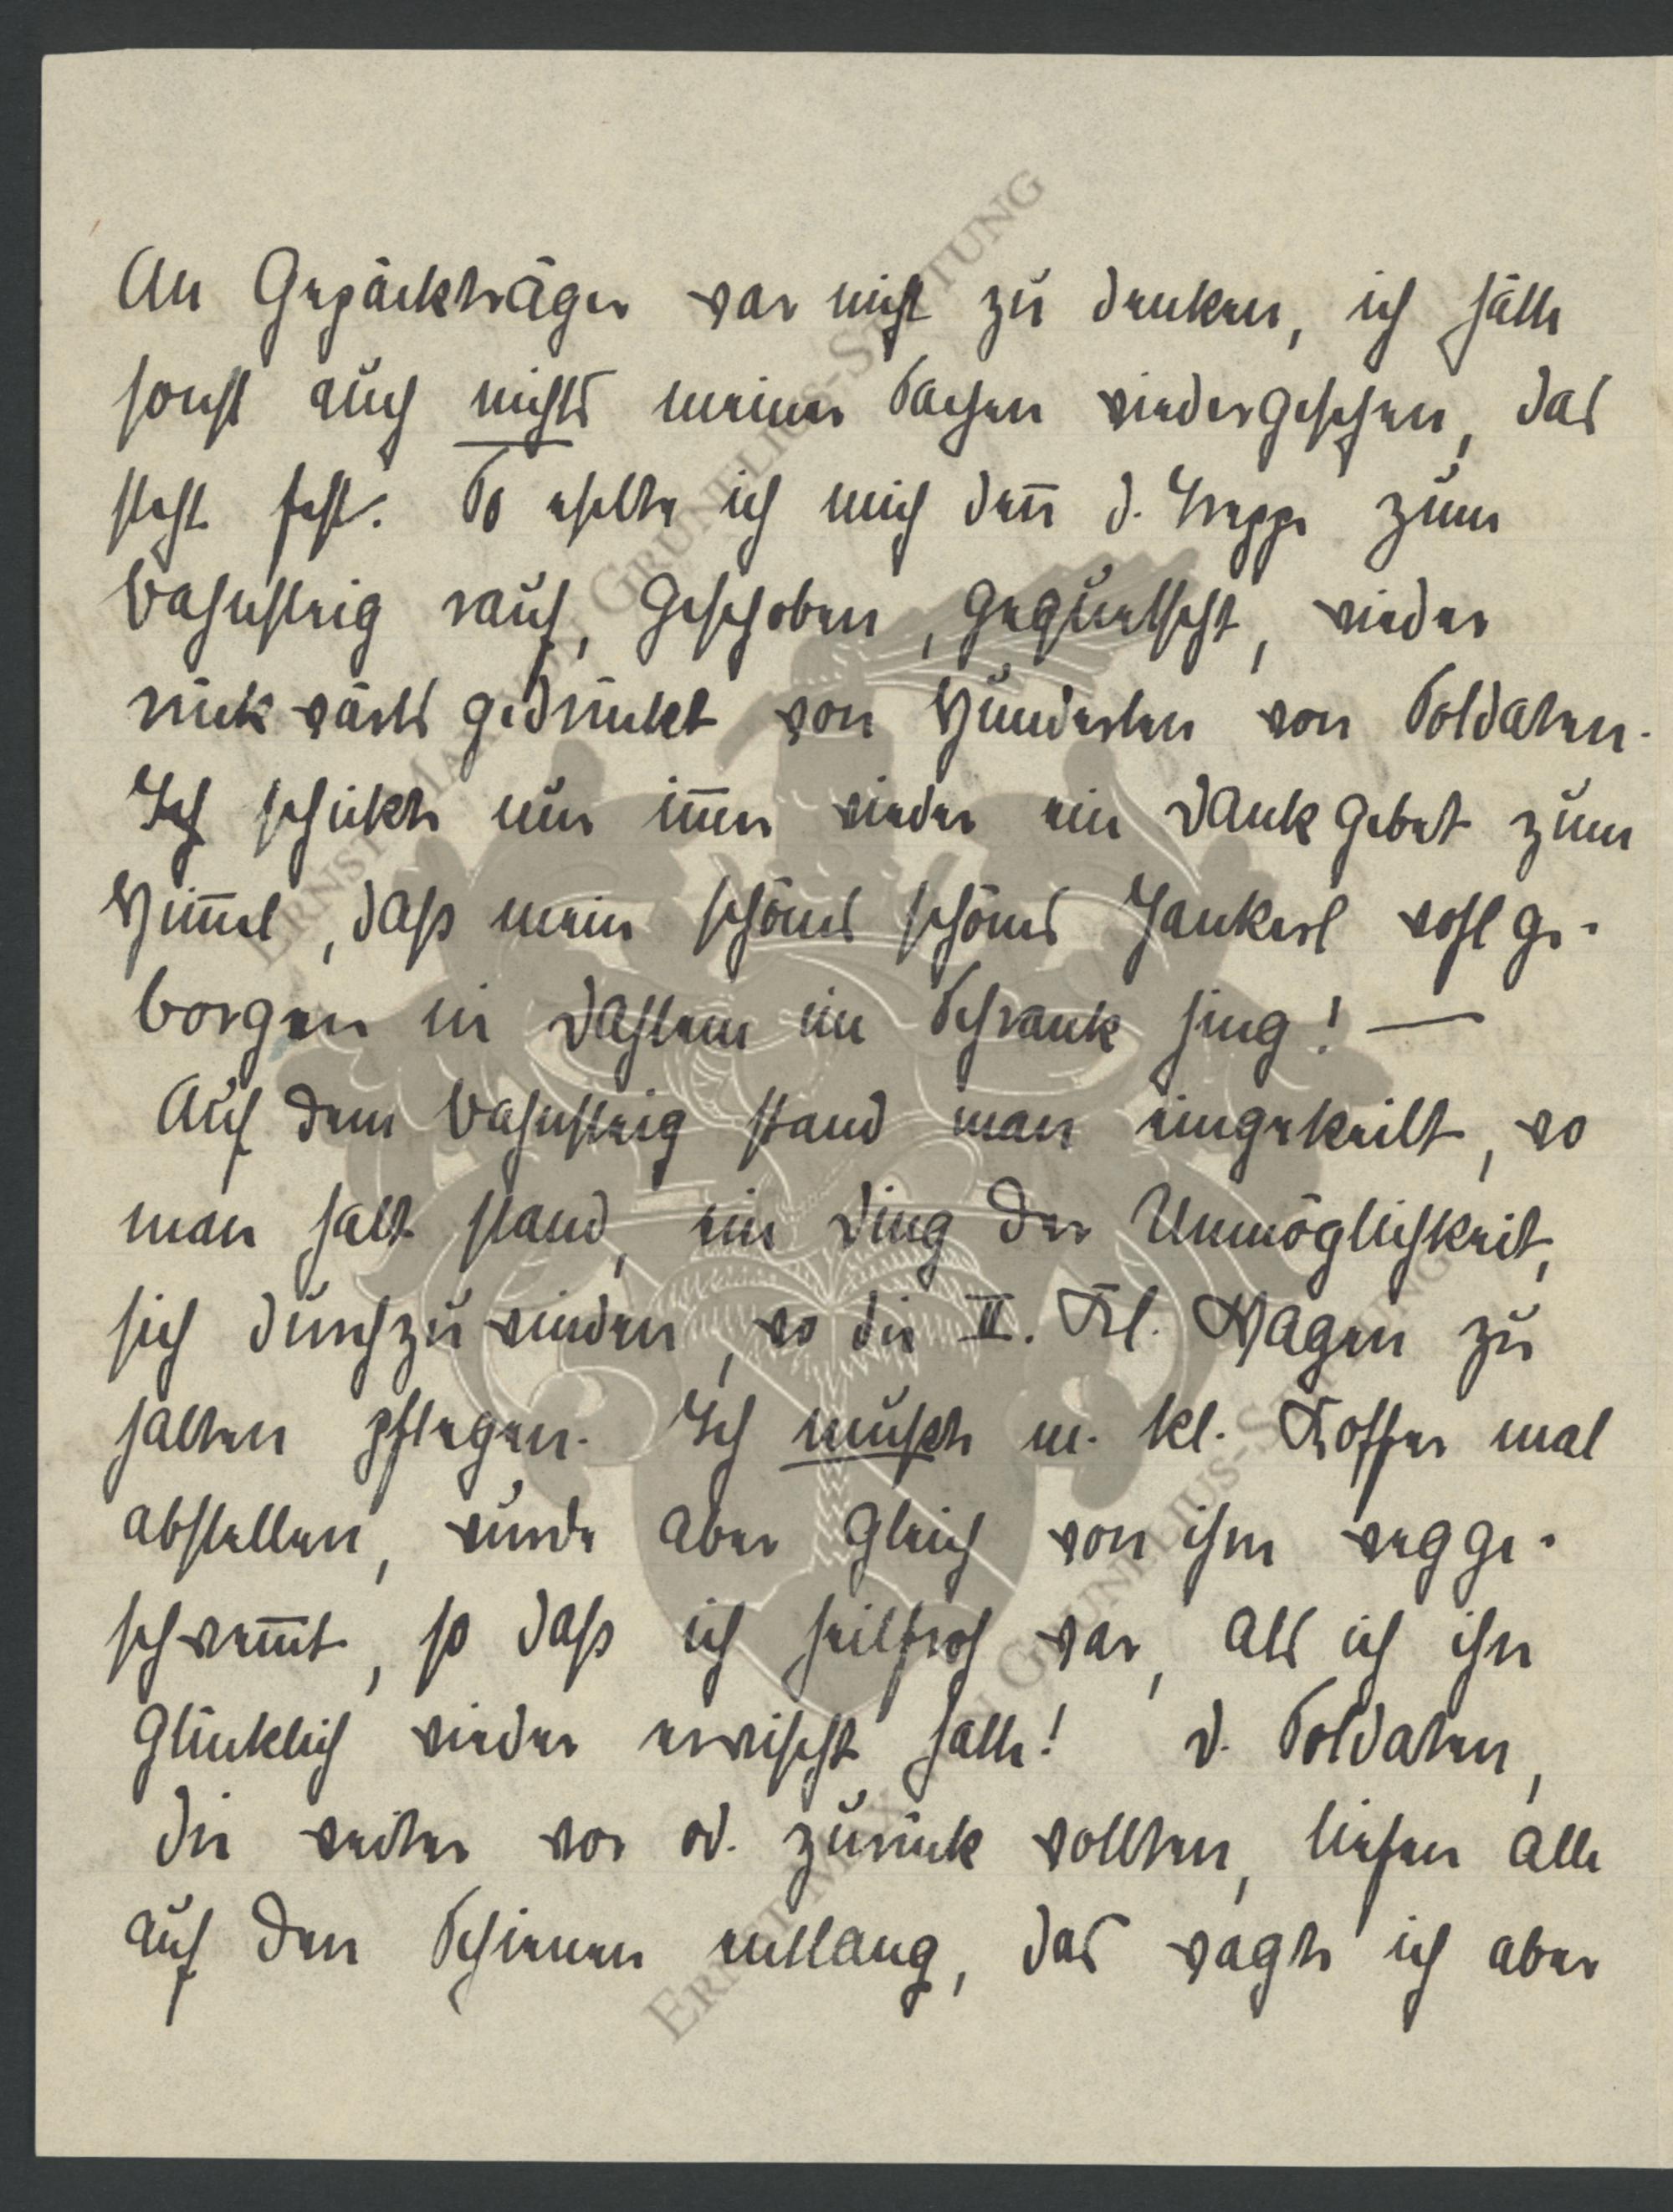 An Gepäckträger war nicht zu denken, ich hätte
sonst auch nichts meiner Sachen wiedergesehen, das
steht fest. So eselte ich mich den̅ d. Treppe zum
Bahnsteig rauf, geschoben, gequetscht, wieder
rückwärts gedrückt von Hunderten von Soldaten.
Ich schickte nur im̅er wieder ein Dankgebet zum
Him̅el, daß mein schönes schönes Jankerl wohl ge-
borgen in Dahlem im Schrank hing! —
Auf dem Bahnsteig stand man eingekeilt, wo
man halt stand, ein Ding der Unmöglichkeit,
sich durchzuwinden, wo die II. Kl. Wagen zu
halten pflegen. Ich mußte m. kl. Koffer mal
abstellen, wurde aber gleich von ihm wegge-
schwem̅t, so daß ich heilfroh war, als ich ihn
glücklich wieder erwischt hatte! D. Soldaten,
die weiter vor od. zurück wollten, liefen alle
auf den Schienen entlang, das wagte ich aber
ERNST MAX VON GRUNELIUS-STIFTUNG
ERNST MAX VON GRUNELIUS-STIFTUNG